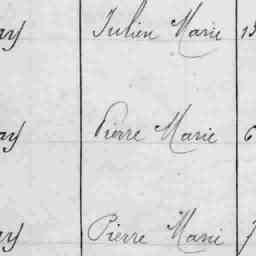 ay Julien Marie 13
ay Pierre Marie 6
ay Pierre Marie